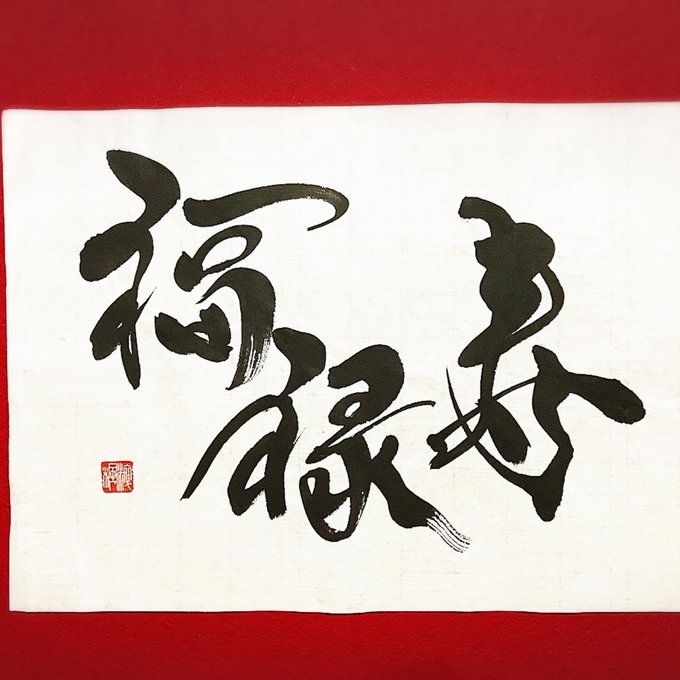 福禄寿